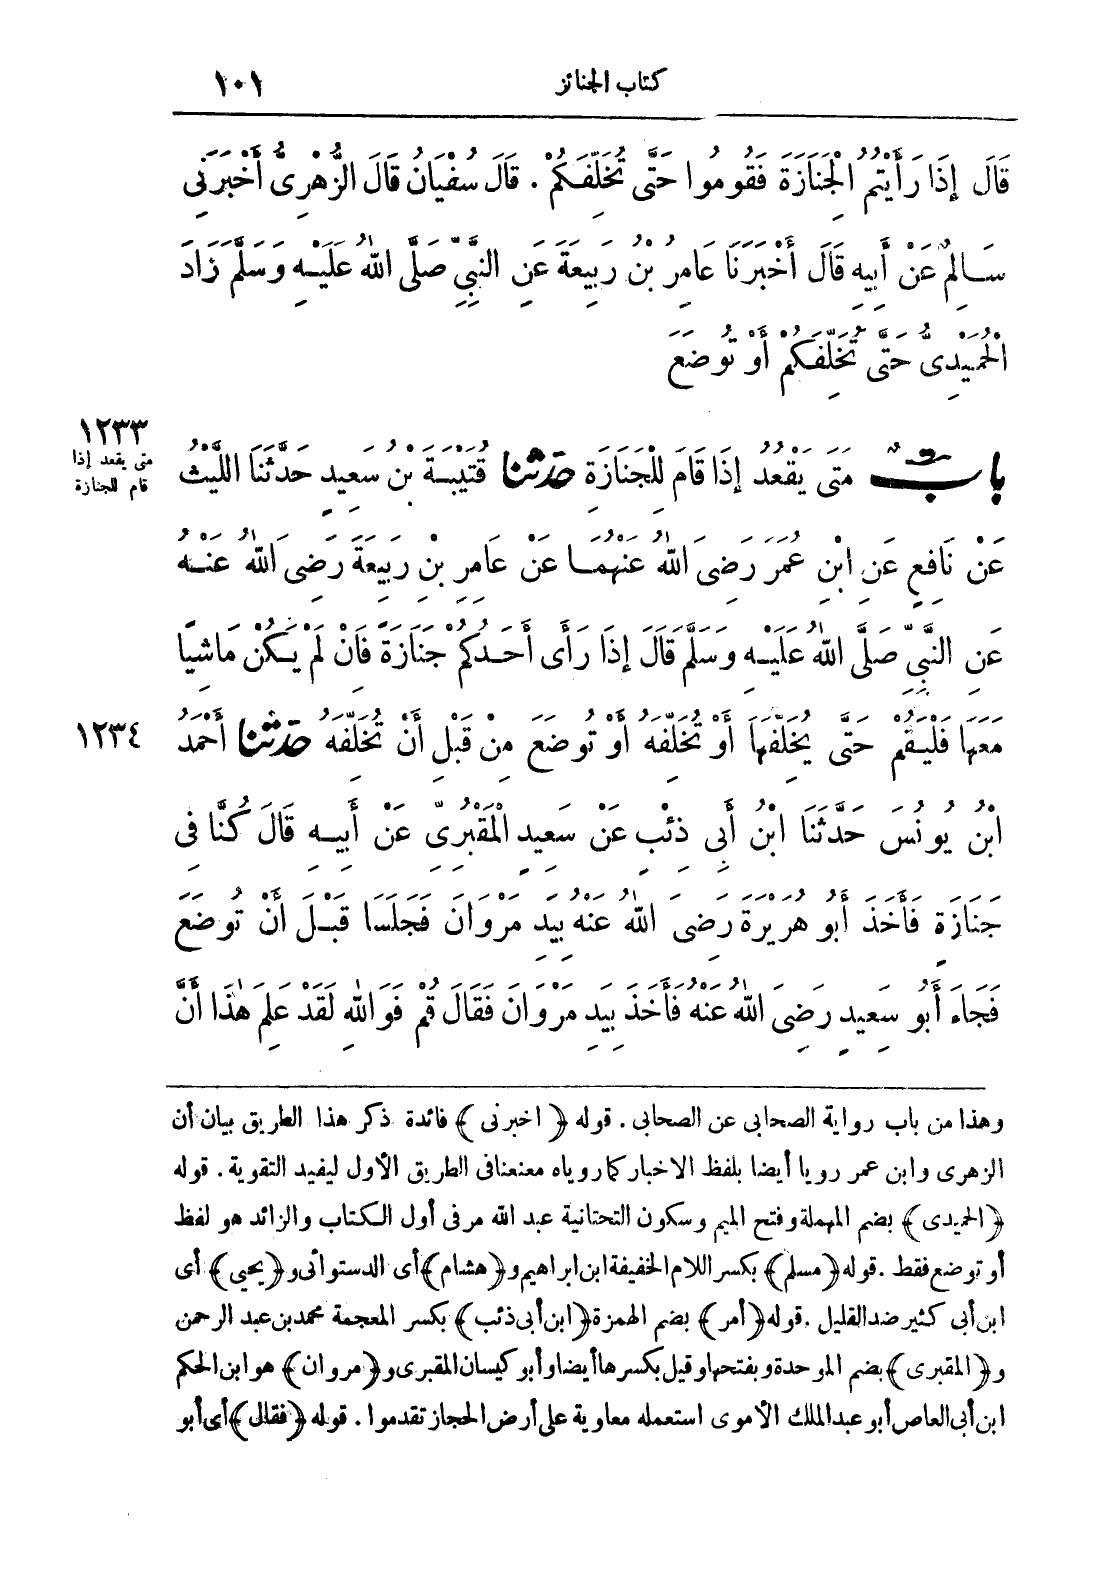 كتاب الجنائز ١٠١
قَالَ إِذَا رَأَيْتُمُ الْجَنَازَةَ فَقُومُوا حَتَّى تُخَلِّفَكُمْ . قَالَ سُفْيَانُ قَالَ الزُّهْرِىُّ أَخْبَرَنِى
سَالِمٌ عَنْ أَبِيهِ قَالَ أَخْبَرَنَا عَامِرُ بْنُ رَبِيعَةَ عَنِ النَّبِىِّ صَلَّى اللهُ عَلَيْهِ وَسَلَّمَ زَادَ
الْحُمَيْدِىُّ حَتَّى تُخَلِّفَكُمْ أَوْ تُوضَعَ
١٢٣٣
متى يقعد إذا
قام للجنازة
بابٌ مَتَى يَقْعُدُ إِذَا قَامَ لِلْجَنَازَةِ حَدَّثَنَا قُتَيْبَةُ بْنُ سَعِيدٍ حَدَّثَنَا اللَّيْثُ
عَنْ نَافِعٍ عَنِ ابْنِ عُمَرَ رَضِىَ اللهُ عَنْهُمَا عَنْ عَامِرِ بْنِ رَبِيعَةَ رَضِىَ اللهُ عَنْهُ
عَنِ النَّبِىِّ صَلَّى اللهُ عَلَيْهِ وَسَلَّمَ قَالَ إِذَا رَأَى أَحَدُكُمْ جَنَازَةً فَانْ لَمْ يَكُنْ مَاشِيًا
١٢٣٤
مَعَهَا فَلْيَقُمْ حَتَّى يُخَلِّفَهَا أَوْ تُخَلِّفَهُ أَوْ تُوضَعَ مِنْ قَبْلِ أَنْ تُخَلِّفَهُ حَدَّثَنَا أَحْمَدُ
ابْنُ يُونُسَ حَدَّثَنَا ابْنُ أَبِى ذِئْبٍ عَنْ سَعِيدٍ الْمَقْبُرِىِّ عَنْ أَبِيهِ قَالَ كُنَّا فِى
جَنَازَةٍ فَأَخَذَ أَبُو هُرَيْرَةَ رَضِىَ اللهُ عَنْهُ بِيَدِ مَرْوَانَ فَجَلَسَا قَبْلَ أَنْ تُوضَعَ
فَجَاءَ أَبُو سَعِيدٍ رَضِىَ اللهُ عَنْهُ فَأَخَذَ بِيَدِ مَرْوَانَ فَقَالَ قُمْ فَوَاللهِ لَقَدْ عَلِمَ هٰذَا أَنَّ
وهذا من باب رواية الصحابى عن الصحابى . قوله ﴿ اخبرنى ﴾ فائدة ذكر هذا الطريق بيان أن
الزهرى وابن عمر رويا أيضا بلفظ الاخبار كما روياه معنعنا فى الطريق الأول ليفيد التقوية . قوله
﴿ الحميدى ﴾ بضم المهملة وفتح الميم وسكون التحتانية عبد الله مر فى أول الكتاب والزائد هو لفظ
أو توضع فقط . قوله ﴿ مسلم ﴾ بكسر اللام الخفيفة ابن ابراهيم و﴿ هشام ﴾ أى الدستوائى و﴿ يحيى ﴾ أى
ابن أبى كثير ضد القليل . قوله ﴿ أمر ﴾ بضم الهمزة ﴿ ابن أبى ذئب ﴾ بكسر المعجمة محمد بن عبد الرحمن
و﴿ المقبرى ﴾ بضم الموحدة وبفتحها وقيل بكسرها أيضا وأبو كيسان المقبرى و﴿ مروان ﴾ هو ابن الحكم
ابن أبى العاص أبو عبد الملك الأموى استعمله معاوية على أرض الحجاز تقدموا . قوله ﴿ فقال ﴾ أى أبو